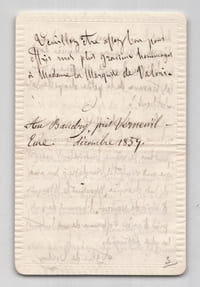 Veuillez être assez bon pour
offrir mes plus gracieux hommages
à Madame la Marquise de Valori
Au Baudry, près Verneuil -
Eure. Décembre 1859.
3